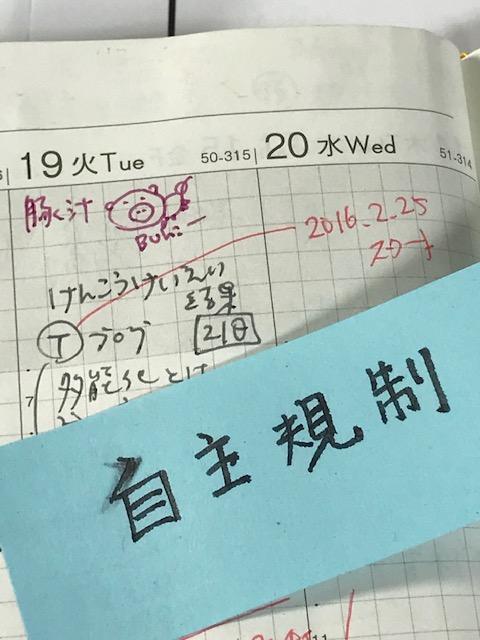 19 火 Tue 50-315
20 水 Wed 51-314
豚汁
Buhi—
2016.2.25
スタート
けんこうけいえい
結果
T ブログ 21日
7
自主規制
11